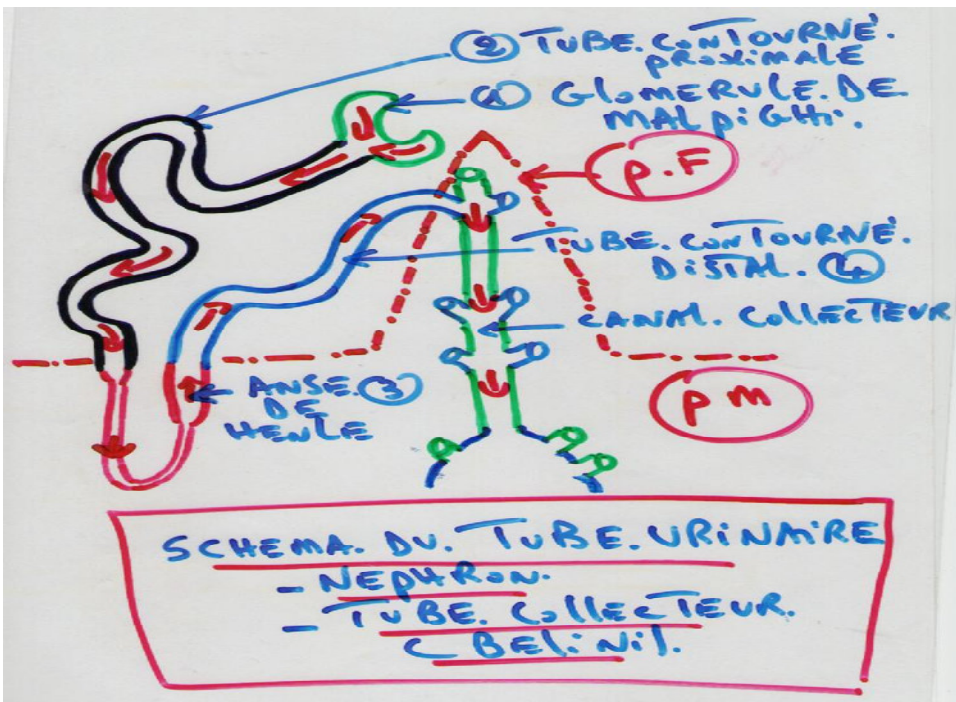 ② TUBE. CONTOURNÉ.
PROXIMALE
① GLOMERULE. DE.
MALPIGHI.
P.F
TUBE. CONTOURNÉ.
DISTAL. ④
CANAL. COLLECTEUR
ANSE. ③
DE
HENLE
PM
SCHEMA. DU. TUBE. URINAIRE
- NEPHRON.
- TUBE. COLLECTEUR.
C BELINIL.